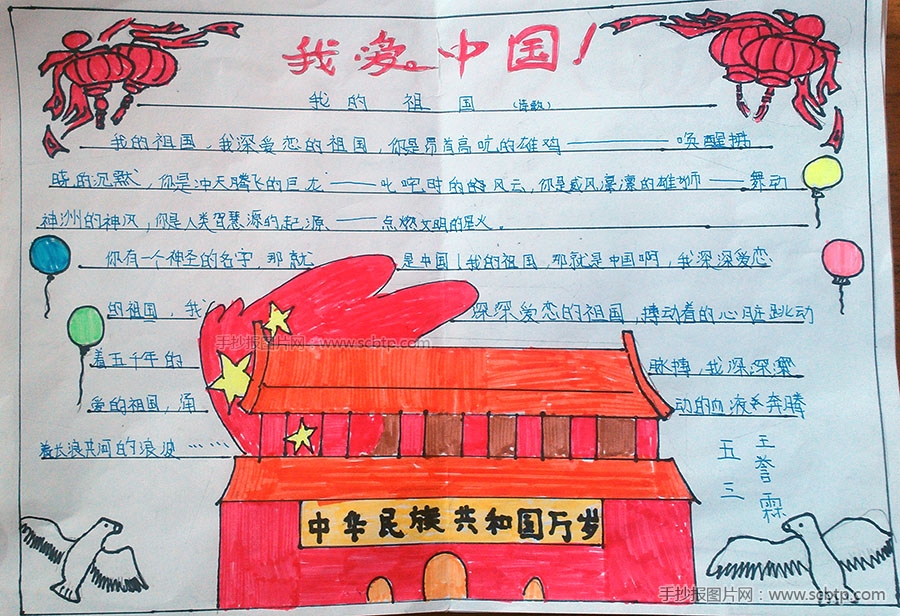 我爱中国！
我的祖国（诗歌）
我的祖国，我深爱恋的祖国，你是昂首高吭的雄鸡——唤醒拂
晓的沉默，你是冲天腾飞的巨龙——叱咤时的风云，你是威风凛凛的雄狮——舞动
神洲的神风，你是人类智慧源的起源——点燃文明的星火。
你有一个神圣的名字，那就 是中国！我的祖国，那就是中国啊，我深深爱恋
的祖国，我 深深爱恋的祖国，搏动着的心脏跳动
手抄报图片网：www.scbtp.com
着五千年的 脉搏，我深深
爱的祖国，涌 动的血液奔腾
着长浪黄河的浪波……
五三
王誉霖
中华民族共和国万岁
手抄报图片网：www.scbtp.com